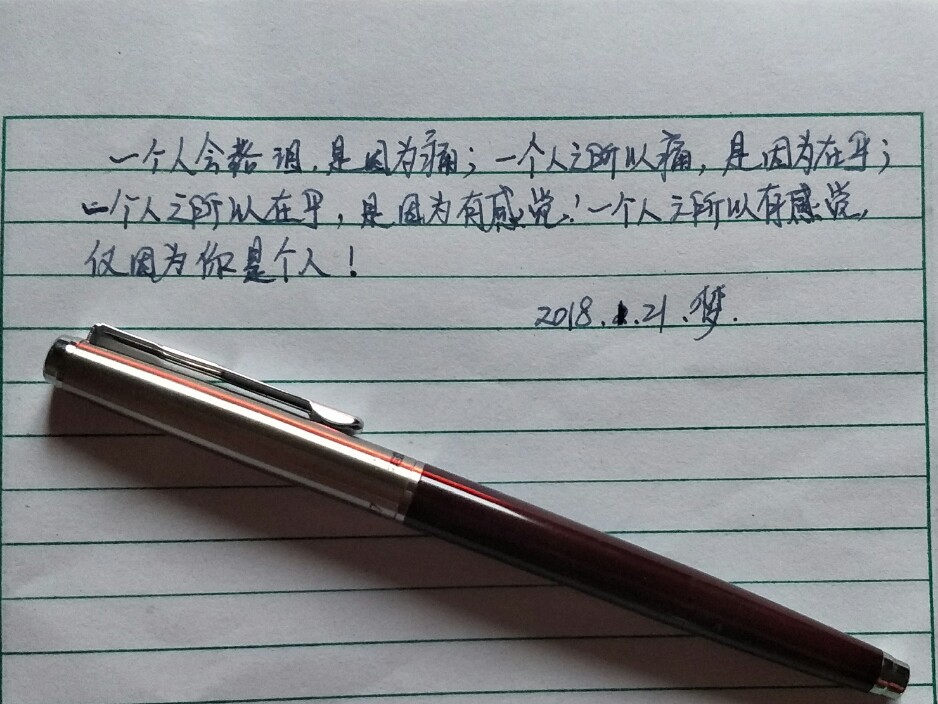 一个人会落泪,是因为痛;一个人之所以痛,是因为在乎;
一个人之所以在乎,是因为有感觉!一个人之所以有感觉,
仅因为你是个人!
2018.1.21.梦.